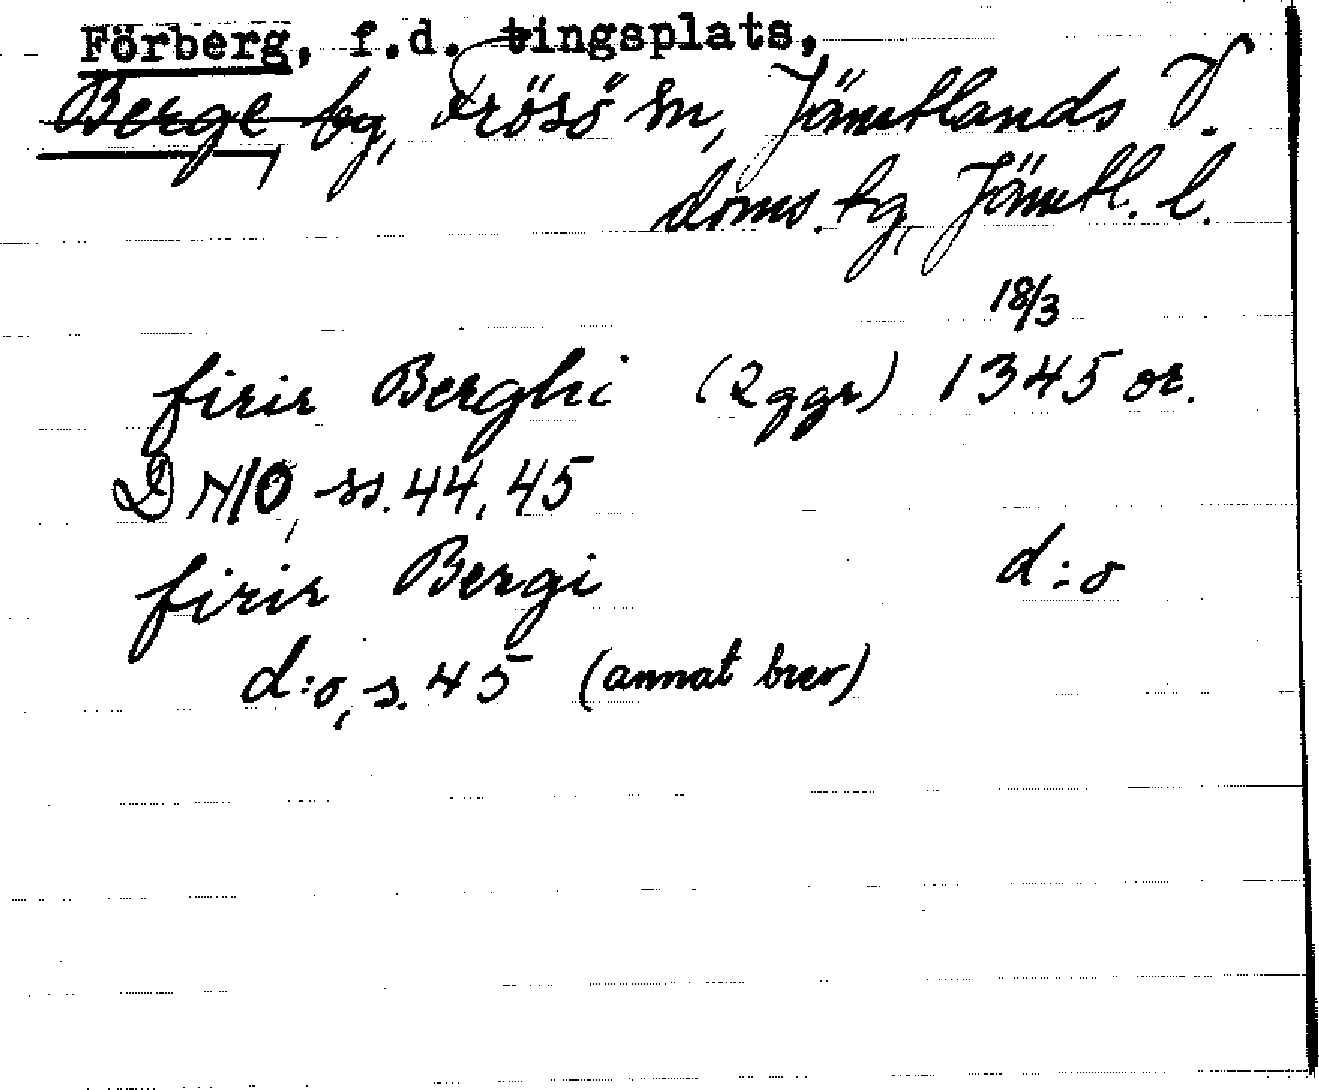 Förberg, f.d. tingsplats,
Berge by, Frösö sn, Jämtlands V.
doms. tg, Jämtl. l.
18/3
firir Berghi (2 ggr) 1345 or.
DN 10, ss. 44, 45
firir Bergi d:o
d:o, s. 45 (annat brev)